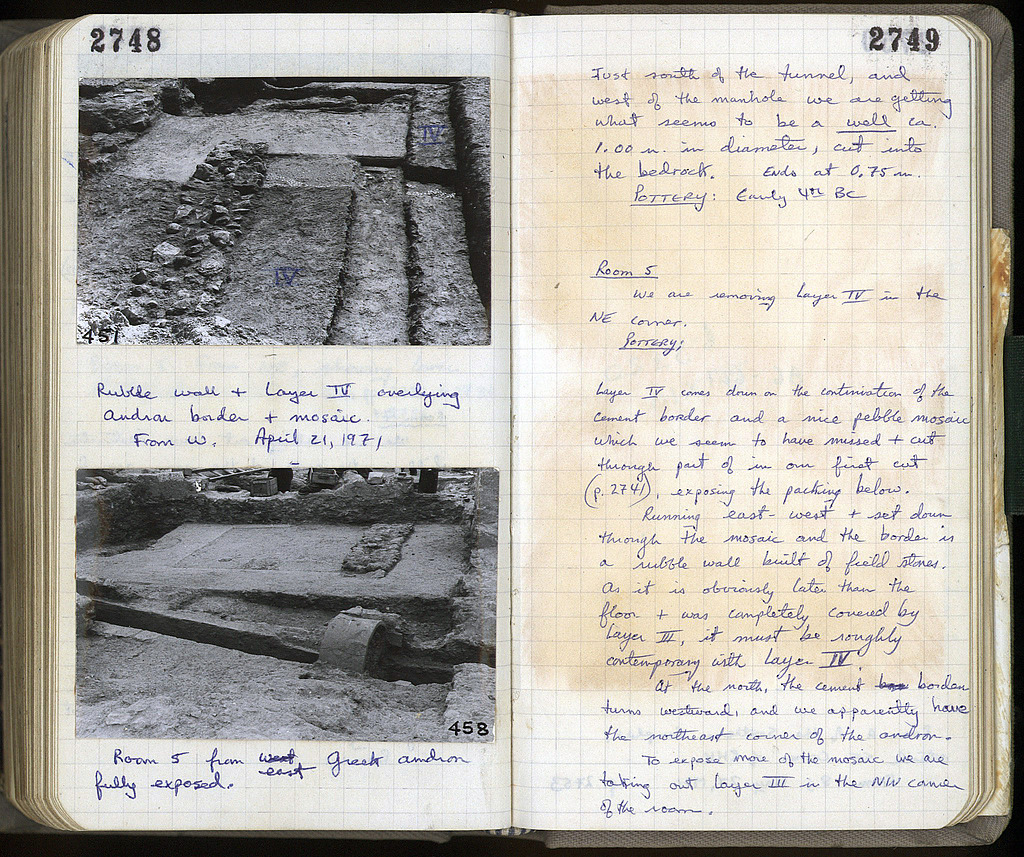 2748
IV
IV
451
Rubble wall + Layer IV overlying
andron border + mosaic.
From W. April 21, 1971
458
Room 5 from west
east Greek andron
fully exposed.
2749
Just south of the tunnel, and
west of the manhole we are getting
what seems to be a well ca.
1.00 m. in diameter, cut into
the bedrock. Ends at 0.75 m.
POTTERY: Early 4th BC
Room 5
We are removing Layer IV in the
NE corner.
POTTERY:
Layer IV comes down on the continuation of the
cement border and a nice pebble mosaic
which we seem to have missed + cut
through part of in our first cut
(p. 2741), exposing the packing below.
Running east-west + set down
through the mosaic and the border is
a rubble wall built of field stones.
As it is obviously later than the
floor + was completely covered by
Layer III, it must be roughly
contemporary with Layer IV.
At the north, the cement border
turns westward, and we apparently have
the northeast corner of the andron.
To expose more of the mosaic we are
taking out Layer III in the NW corner
of the room.